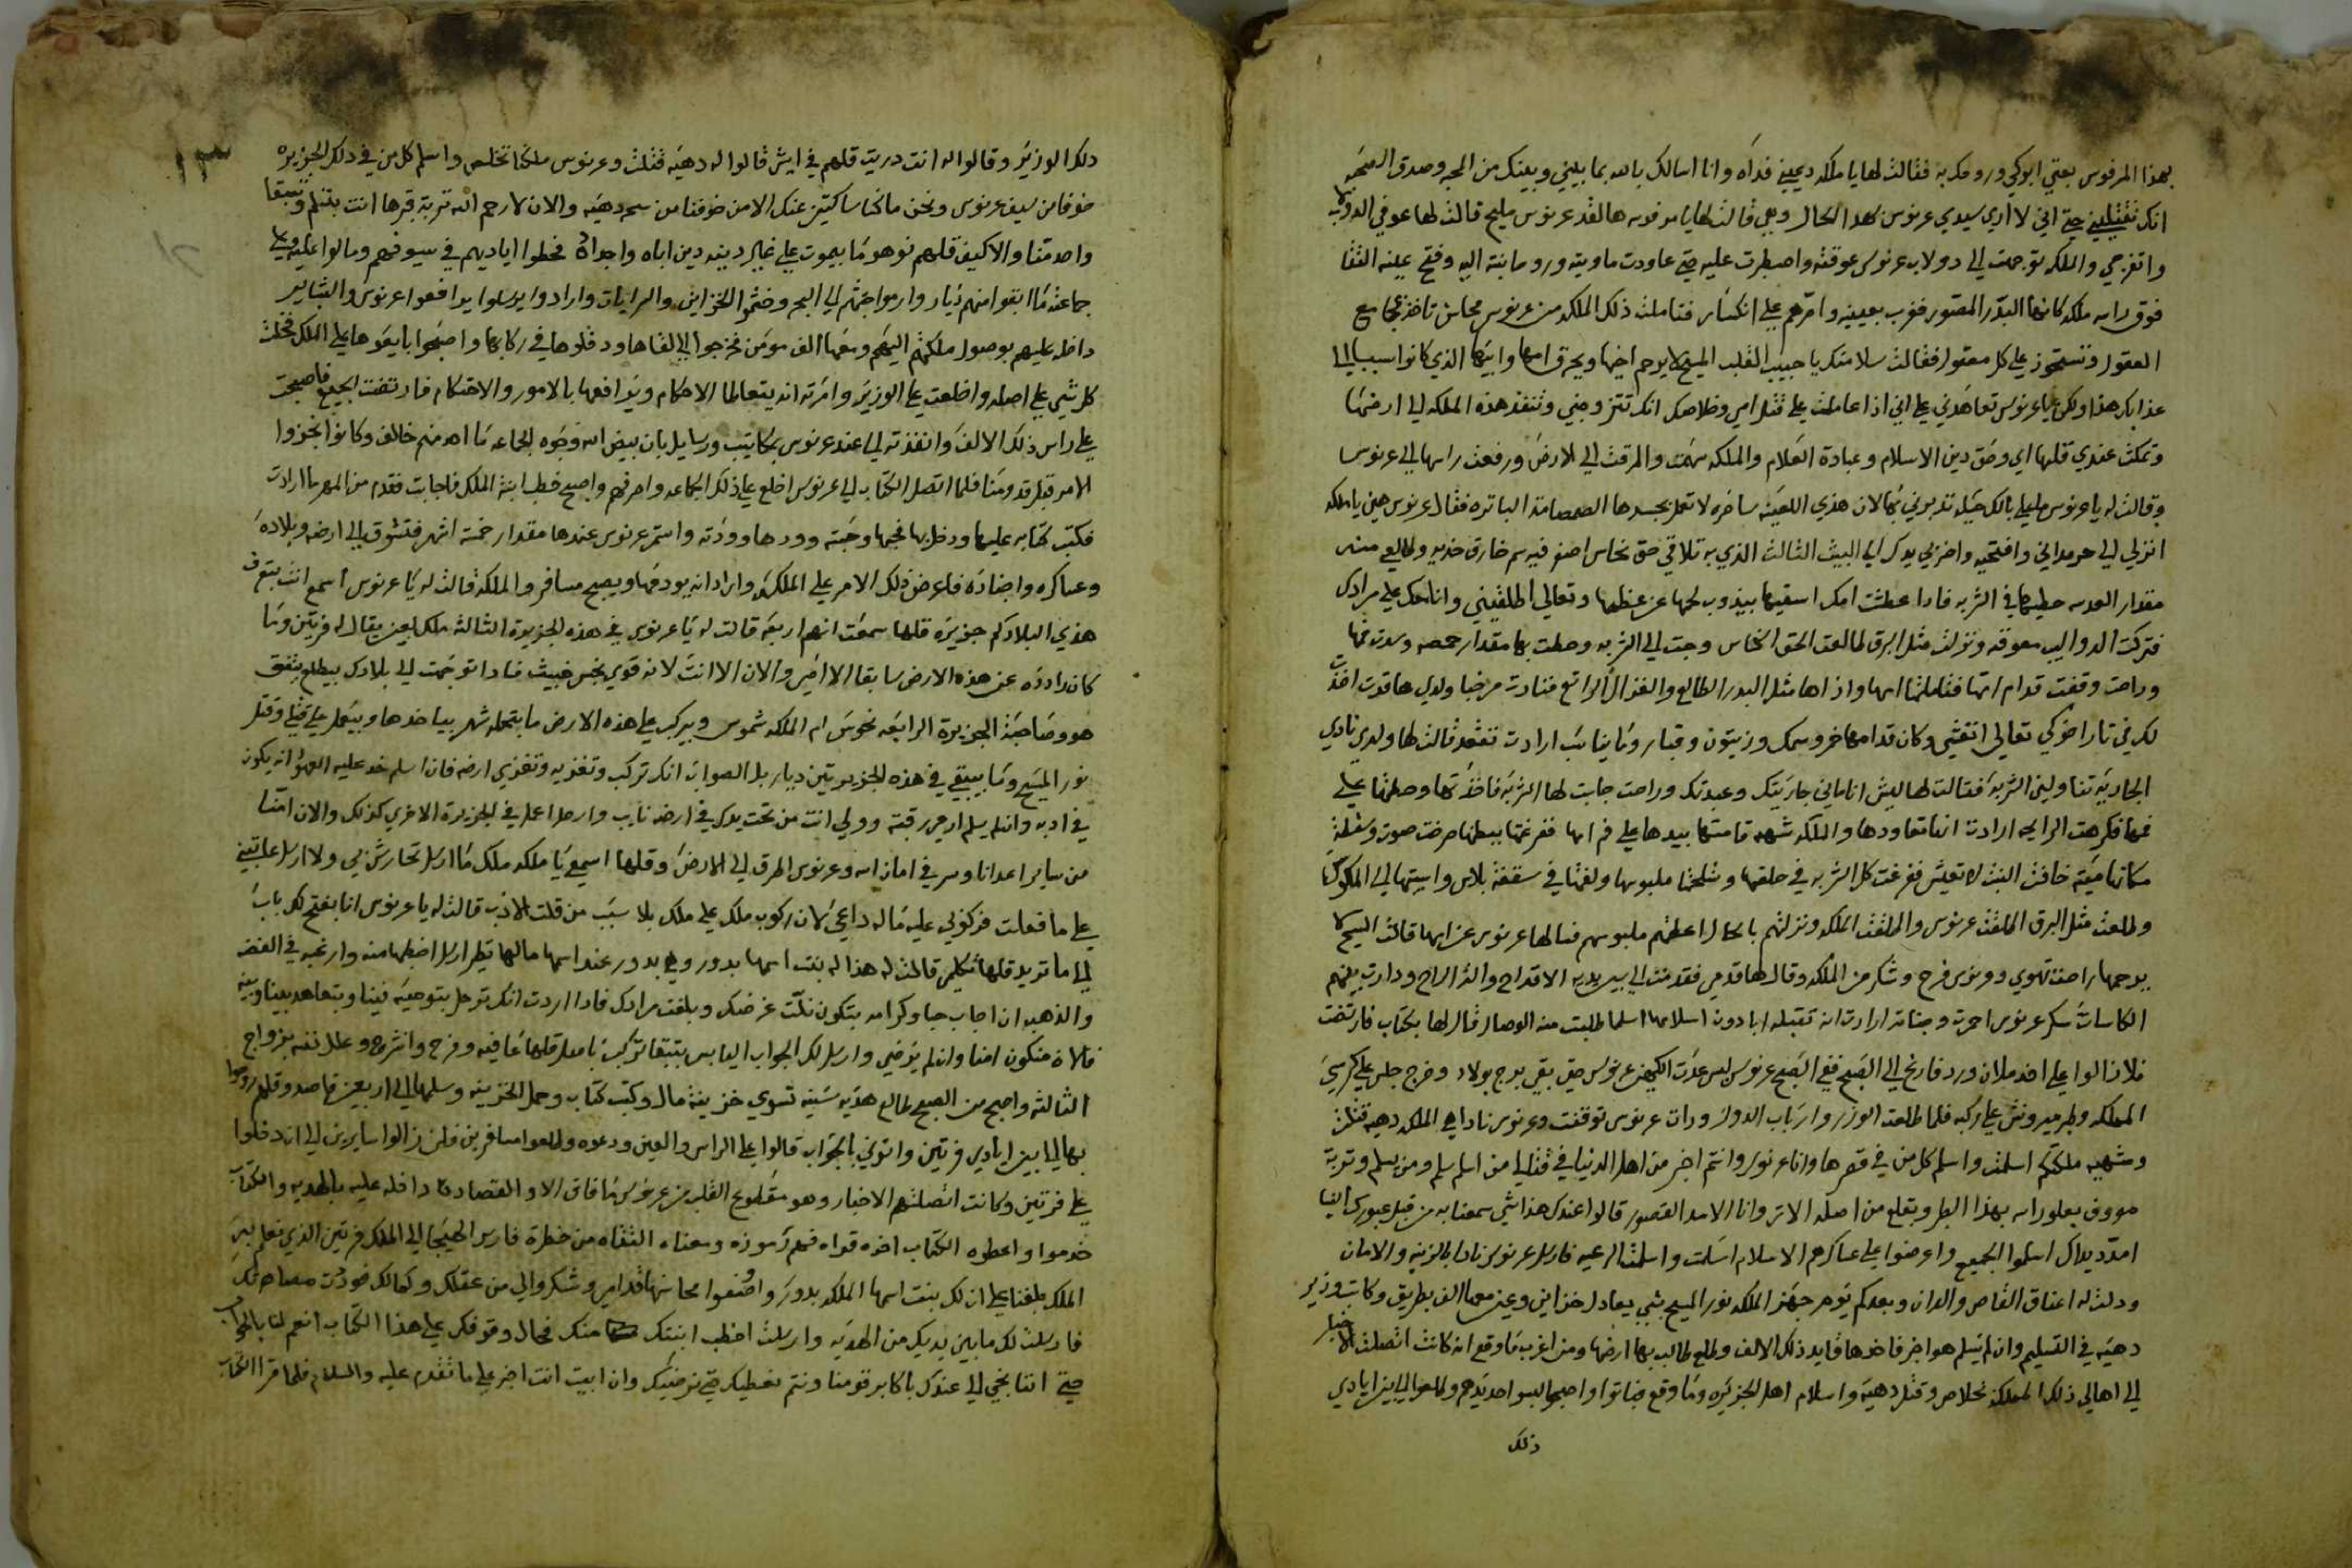 بهذا المرفوس بعتي ابوكي وروحك به فقالت لها يا ملكه ديمينه فداه وانا اسالك بالله بما بيني وبينك من المحبه وصدق الصحبه
انك تقتليني حتي اني لا اري سيدي عرنوس بهدا الحال وهي قالت لها يا لقد عرنوس مليح قالت لها عوفي الدولاب
واتفرجي والملكه توجهت الي دولاب عرنوس عوقته واصطبرت عليه حتي عاودت ماويته وروحانيته اليه وفتح عينه التقا
فوق راسه ملكه كانها البدر المصور فغرب بعينه فتاملت ذلك الملكه من عرنوس محاسن تاخذ بمجامع
العقول وتستحوز علي كل معقول فقالت سلامتك يا حبيب القلب المسيح لا يرحم اخيها ويحرق امها وابيها الذي كانوا سبب الي
عذابك هذا ولكن يا عرنوس تعاهدني علي اني اذا عاملت علي قتل امي وخلاصك انك تتزوجني وتنفذ هذه الملكه الي ارضها
وتمكث عندي قلها اي وحق دين الاسلام وعبادة العلام والملكه شهمت والمرقت الي الارض ورفعت راسها الي عرنوس
وقالت له يا عرنوس ملعلي بالك حيله تدبروني بها لان هذي اللعينه ساحره لا تعمل بجسدها الصمصامة الباتره فقال عرنوس هين يا ملكه
انزلي الي حرمداني وافتحيه واضربي يدك الي البيت الثالث الذي به تلاقي حق نحاس اصفر فيه سم خارق خديه وطالعي منه
مقدار العدسه حطيها في الشربه فادا عطشت امك اسقيها بيذوب لحمها عن عظمها وتعالي اطلقيني وانا معك علي مرادك
فتركت الدواليب معوقه ونزلت مثل البرق طالعت الحق النحاس وجت الي الشربه وحطت بها مقدار حمصه وسدت تمها
وراحت وقفت قدام امها فتاملتها امها واذاها مثل البدر الطالع والغزال الراتع فنادت مرحبا ولدي هاقدت اخذت
لك في تار اخوكي تعالي اتعشي وكان قدامها خمر وسمك وزيتون وقبار وما يناسب ارادت تقعد قالت لها ولدي نادي
الجاريه تناولني الشربه فقالت لها ليش انا ماني جاريتك وعبدتك وراحت جابت لها الشربه فاخذتها وحطتها علي
فمها فكرهت الرايحه ارادت انها تعاودها والملكه شهمه قامتها بيدها علي فم امها ففرغتها ببطنها صرخت صوت وسفلة
مكانها ميته خافت البنت لا تعيش ففرغت كل الشربه في حلقها وشلحتها ملبوسها ولفتها في سقفة بلاس واسيتها الي المكوك
وطلعت مثل البرق اطلقت عرنوس واطلقت الملكه ونزلتهم بالحال اعطتهم ملبوسهم فسالها عرنوس عن امها قالت المسيح لا
يرحمها راحت تهوي وعرنوس فرح وشكر من الملكه وقال لها قدمي فقدمت الي بين يديه الاقداح والذ الراح ودارت بينهم
الكاسات سكر عرنوس احمرت وجناته ارادت انه تقبله ابا دون اسلامها اسلما طلبت منه الوصال قال لها بكتاب فارتضت
فلا زالوا علي اخد ملان ورد فارغ الي الصبح ففي الصبح عرنوس لبس عدت الكمين عرنوس حتي بقي برج بولاد وخرج جلس علي كرسي
المملكه وطرمير ونش علي ركبه فلما طلعت الوزر وارباب الدول ورات عرنوس توقفت وعرنوس ناداهم الملكه دهيه قتلت
وشهمه ملكتكم اسلمت واسلم كل من في قصرها وانا عرنوس وانتم اخبر من اهل الدنيا في قتالي من اسلم سلم ومن يسلم وتربة
معروف بعلو راسه بهذا الطير ويقلع من اصله الاثر وانا الاسد القصور قالوا عندك هذا شي سمعنا به من قبل عبورك الينا
امدد يداك اسلموا الجميع واعرضوا علي عساكرهم الاسلام اسلمت واسلمت الرعيه فارسل عرنوس نادا بالزينه والامان
ودلت له اعناق القاص والدان وبعدكم يوم جهز الملكه نور المسيح بشي يعادل خزاين وعين معها الف بطريق وكاتب وزير
دهيه في التسليم وان لم يسلم هو اخبر فاخدها قايد ذلك الالف وطلع طالب بها ارضها ومن اغرب ما وقع ان كانت اتصلت الاخبار
الي اهالي ذلك المملكة بخلاص وقتل دهيه واسلام اهل الجزيره وما وقع فباتوا واصبحوا لبسوا احد يدهم وطلعوا الي بين ايادي
ذلك
١٣
دلك الوزير وقالوا له انت دريت قلهم في ايش قالوا له دهيه قتلت وعرنوس ملكنا تخلص واسلم كل من في دلك الجزيره
خوفا من سيف عرنوس ونحن ما كنا ساكتين عنك الا من خوفنا من سحر دهيه والان لا رحم الله تربة قبرها انت بتسلم وتبقا
واحد منا والا كيف قلهم نوهوما بيموت علي غير دينه دين اباه واجداده فحطوا اياديهم في سيوفهم ومالوا عليه وعلي
جماعته ما ابقوا منهم ديار وارموا جثتهم الي البحر وختموا الخزاين والرايات وارادوا يرسلوا يرافعوا عرنوس والبشاير
داخله عليهم بوصول ملكتهم اليهم ومعها الف مومن خرجوا الي لقاها ودقلوها في ركابها واصبحوا بايعوها علي الملك فخلت
كل شي علي اصله واخلعت علي الوزير وامرته انه يتعاطا الاحكام ويرافعها بالامور والاحتكام فارتضت الجميع فاصبحت
علي راس ذلك الالف وانفذته الي عند عرنوس بمكاتيب ورسايل بان بيض الله وجوه الجماعه ما احد منهم خالف وكانوا نجزوا
الامر قبل قدومنا فلما اتصل الكتاب الي عرنوس اخلع علي ذلك الجماعه واصرفهم واصبح خطب ابنة الملك فاجابت فقدم من المهر ما ارادت
فكتب كتابه عليها ودخل بها فحبها وحبته وودها وودته واستمر عرنوس عندها مقدار خمسة اشهر فتشوق الي ارضه وبلاده
وعساكره واجناده فاعرض ذلك الامر علي الملكه وارادانه يودعها ويصبح مسافر والملكة قالت له يا عرنوس اسمع انت بتعرف
هذي البلادكم جزيره قلها سمعت انهم اربعه قالت له يا عرنوس في هذه الجزيرة الثالثه ملك لعين يقال له فرتين وما
كان رادده عن هذه الارض سابقا الا امي والان الا انت لانه قوي نجس خبيث فادا توجهت الي بلادك بيطلع يتفق
هو وصاحبة الجزيرة الرابعه نحوس ام الملكه شموس وبيركب علي هذه الارض ما بتحمله شهر بياخدها وبيعمل علي قتلي وقتل
نور المسيح وما بيبقي في هذه الجزيرتين ديار بل الصواب انك تركب وتغزيه وتغزي ارضه فان اسلم خد عليه العهود انه يكون
في ادبه وان لم يسلم ارمي رقبته وولي انت من تحت يدك في ارضه نايب وارحل اعمل في الجزيرة الاخري كذلك والان امنا
من ساير اعدانا وسر في امان الله وعرنوس اطرق الي الارض وقلها اسمعي يا ملكه ملك ما ارسل تحارش بي ولا ارسل عاتبني
علي ما فعلت فركوبي عليه ما له داعي لان ركوب ملك علي ملك بلا سبب من قلت الادب قالت له يا عرنوس انا بفتح لك باب
الي ما تريد قلها تكلمي قالت له هذا له بنت اسمها بدور وهي بدور عند اسمها مالها نظير ارسل اخطبها منه وارغبه في الفضه
والذهب ان اجاب حبا وكرامه بتكون نكت غرضك وبلغت مرادك فادا اردت انك ترحل بتوصيه فينا وبتعاهد بيننا وبينه
فالان منكون امنا وان لم يرضي وارسل لك الجواب اليابس بتبقا تركب يا معلم قلها عافيه وفرح وانشرح وعلل نفسه بزواج
الثالثه واصبح من الصبح طالع هديه سنيه تسوي خزينة مال وكتب كتاب وحمل الخزينه وسلمها الي اربعين قاصد وقلهم روحوا
بها الي ما بين ايادي فرتين واتوني بالجواب قالوا علي الراس والعين ودعوه وطلعوا مسافرين ولن زالوا سايرين الي ان دخلوا
علي فرتين وكانت اتصلتهم الاخبار وهو مقطوع القلب من عرنوس ما فاق الا والقصاده داخله عليه بالهديه والكتاب
خدموا واعطوه الكتاب اخده قراه فهم رموزه ومعناه التقاه من خطرة فارس الهيجا الي الملك فرتين الذي نعلم به
الملك بلغنا علي ان لك بنت اسمها الملكه بدور واوصفوا محاسنها قدامي وشكروا لي من عقلك وكمالك فودت مصاهرتك
فارسلت لك ما بين يديك من الهديه وارسلت اخطب ابنتك منك فحال وقوفك علي هذا الكتاب انعم لنا بالجواب
حتي اننا نجي الي عندك باكابر قومنا ونتم نعطيك حتي نرضيك وان ابيت انت اخبر علي ما تقدم عليه والسلام فلما قرا الكتاب